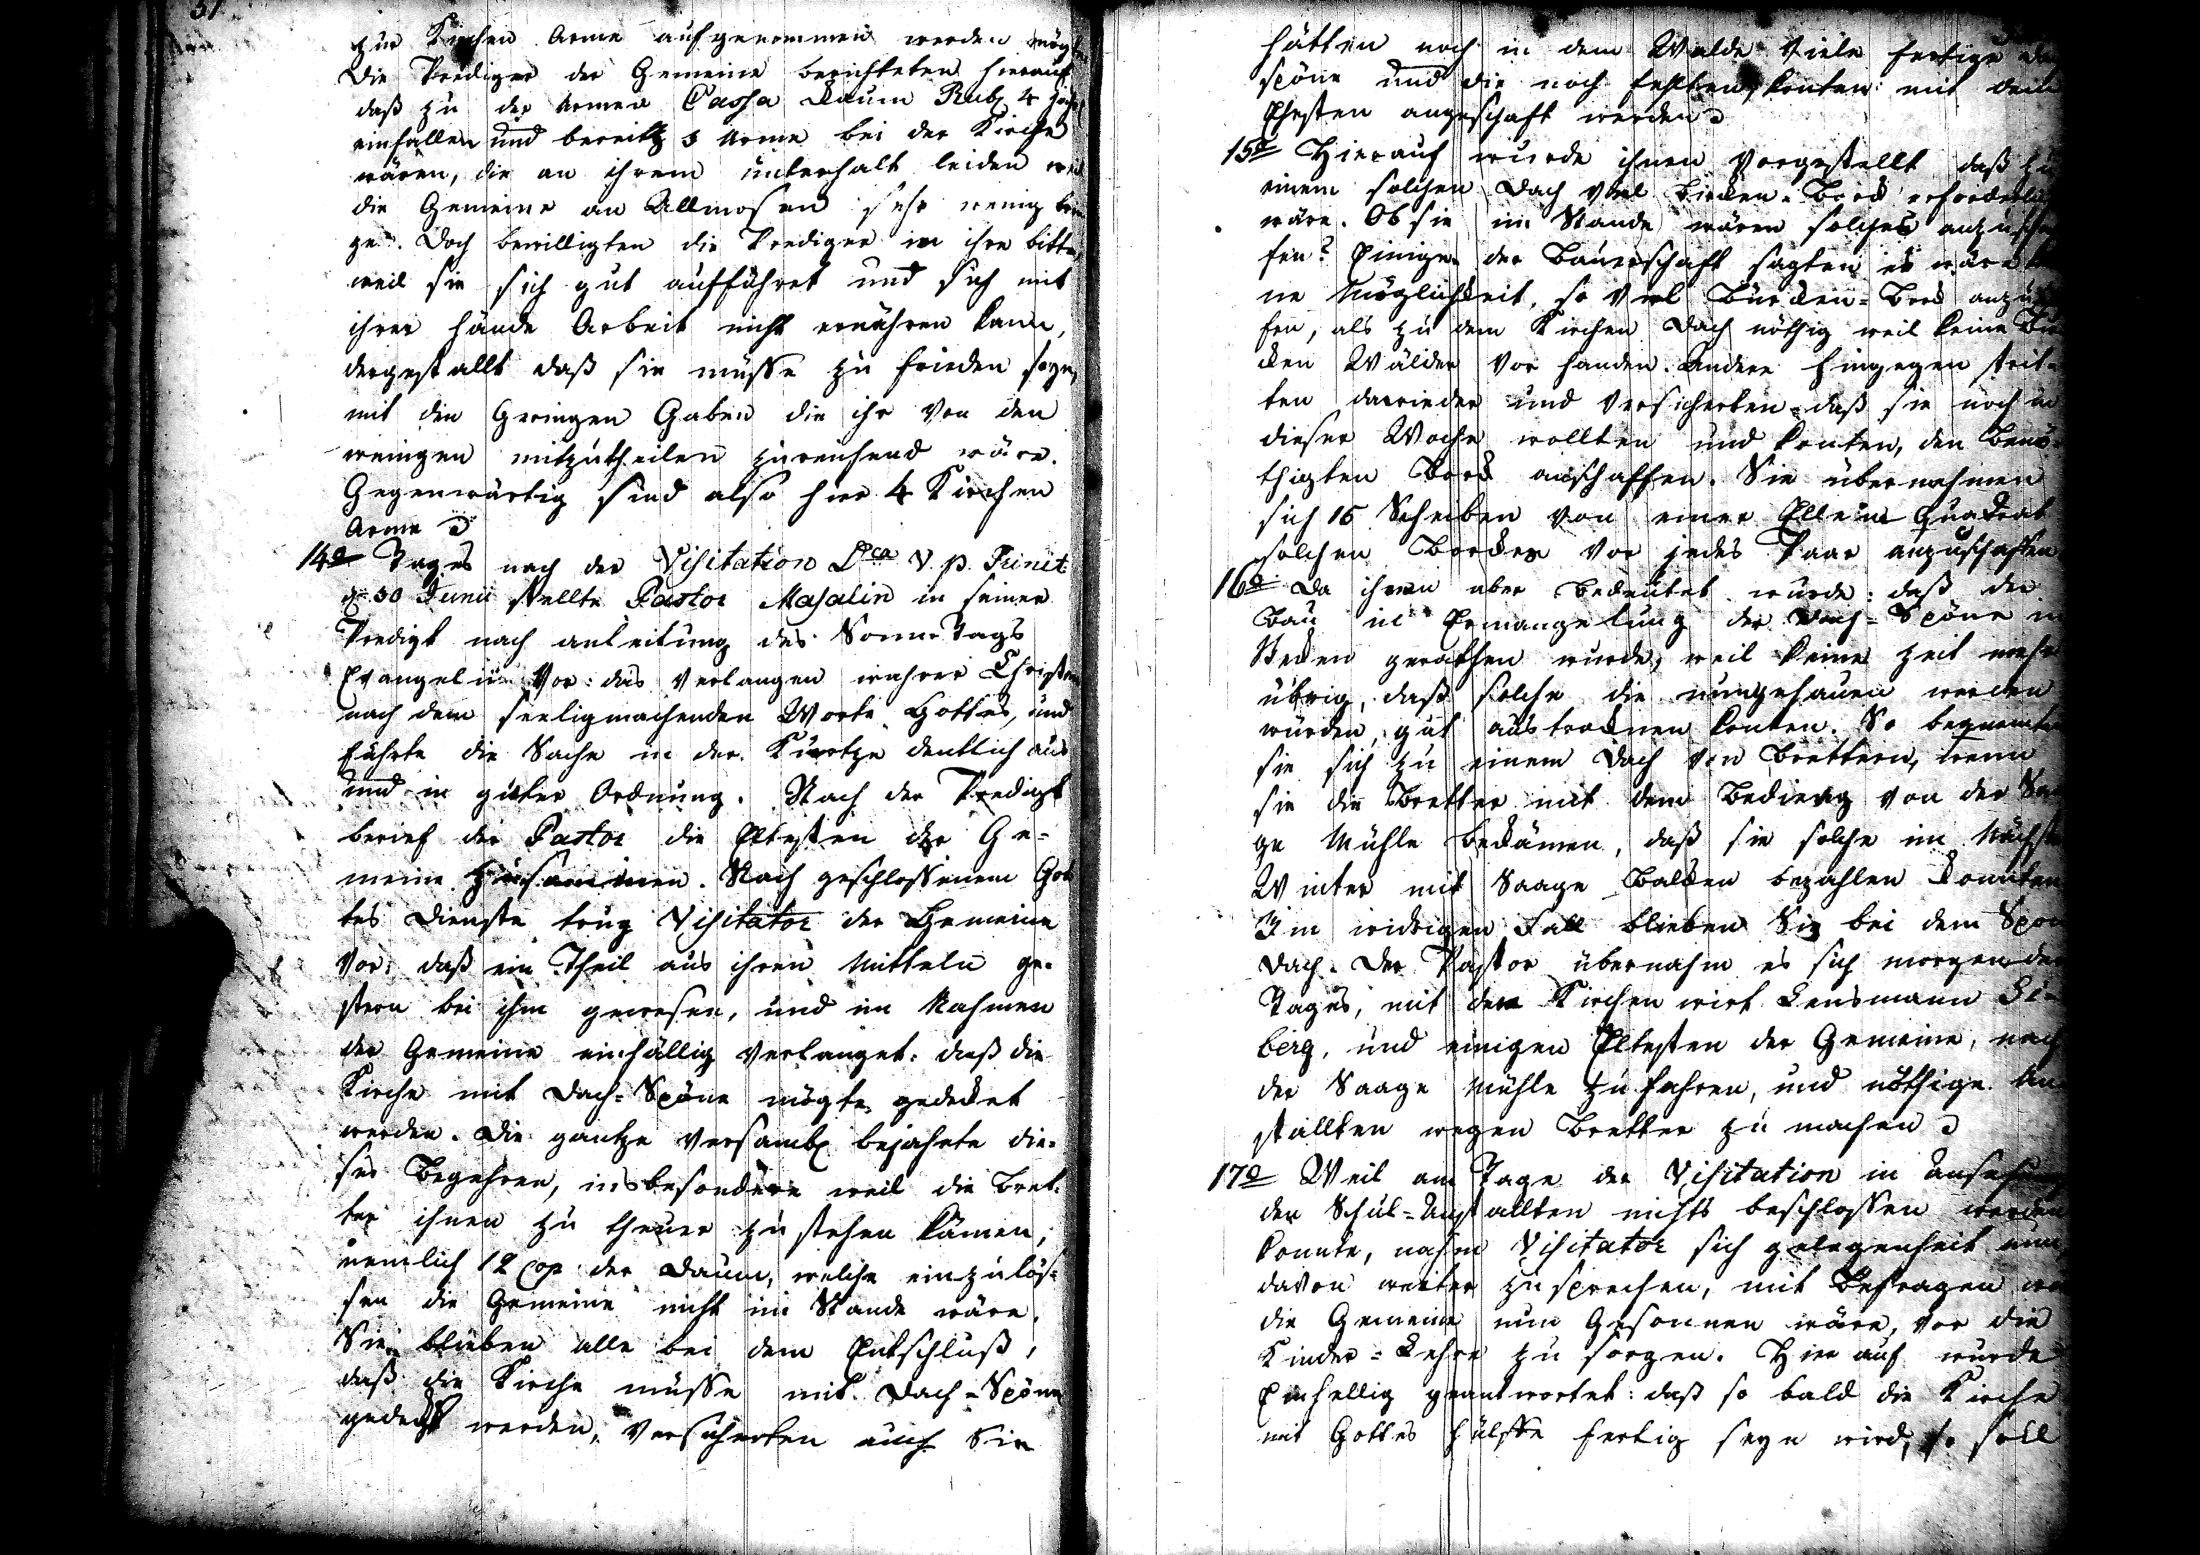 zur Kirchen Arme aufgenommen werden mögte
Die Prediger der Gemeine berichteten hierauf
daß zu der Armen Cassa kaum Rub 4 jährl
einfallen und bereits 3 Arme bei der Kirche
wären, die an ihrem unterhalt leiden weil
die Gemeine an Allmosen sehr wenig brin
ge. Doch bewilligten die Prediger in ihre bitte,
weil sie sich gut aufführet und sich mit
ihrer hände Arbeit nicht ernähren kann,
dergestallt daß sie müsse zu frieden seyn,
mit den Geringen Gaben die ihr von den
wenigen mitzutheilen zureichend wäre.
Gegenwärtig sind also hier 4 Kirchen
Arme
14o Tages nach der Visitation Dca V. p. Trinit
d 30 Junii stellte Pastor Masalin in seiner
Predigt nach anleitung des Sonn-Tags
Evangelii vor: das verlangen wahrer Christen
nach dem seeligmachenden Worte Gottes, und
führte die Sache in der Kürtze deutlich aus
und in guter Ordnung. Nach der Predigt
berief der Pastor die Eltesten der Ge-
meine zusammen. Nach geschlossenem Got
tes Dienste trug Visitator der Gemeine
vor: daß ein Theil aus ihren Mitteln ge-
stern bei ihm gewesen, und im Nahmen
der Gemeine einhällig verlanget: daß die
Kirche mit Dach-Spöne mögte gedecket
werden. Die gantze Versaml bejahete die-
ses Begehren, insbesondere weil die Bret-
ter ihnen zu theuer zu stehen kämen,
nemlich 12 Cop der Daum, welche einzulös-
sen die Gemeine nicht im Stande wäre.
Sie blieben alle bei dem Entschluß,
daß die Kirche müsse mit Dach-Spöne
gedeckt werden, versicherten auch Sie
hätten noch in dem Walde viele fertige
spöne und die noch fehlten, konten mit dem
Ehesten angeschaft werden
15o Hierauf wurde ihnen vorgestellt daß zu
einem solchen Dach viel bircken-Borck erforderlich
wäre. Ob sie im Stande wären solches anzuschaf
fen? Einige der Bauerschaft sagten es wäre kei
ne Möglichkeit, so viel Bürcken-Borck anzuschaf
fen, als zu dem Kirchen Dach nöthig weil keine Bir
cken Wälder vorhanden. Andere hingegen strit-
ten darwieder und versicherten daß sie noch in
dieser Woche wollten und konten, den benö-
thigten Borck anschaffen. Sie übernahmen
sich 15 Scheiben von einer Ellen Quadrat
solchen Borcken vor jedes Paar anzuschaffen
16o Da ihnen aber bedeutet wurde: daß der
Bau in Ermangelung der Dach-Spöne in
Stecken gerathen wurde, weil keine Zeit mehr
übrig, daß solche die nun gehauen werden
würden, gut austrocknen konten. So bequemten
sie sich zu einem Dach von Brettern, wenn
sie die Bretter mit dem Beding von der Sa
ge Mühle bekämen, daß sie solche im Nächsten
Winter mit Saage Balcken bezahlen konnten
Im widrigen Fall blieben Sie bei dem Spon
Dach. Der Pastor übernahm es sich morgenden
Tages, mit dem Kirchen wirt Lensmann Si-
berg, und einigen Eltesten der Gemeine, nach
der Saage Mühle zu fahren, und nöthige An
stallten wegen Bretter zu machen
17o Weil am Tage der Visitation in Ansehung
der Schul-Anstallten nichts beschlossen werden
konnte, nahm Visitator sich gelegenheit nun
davon weiter zu sprechen, mit Befragen wie
die Gemeine nun Gesonnen wäre, vor die
Kinder-Lehre zu sorgen. Hier auf wurde
Einhellig geantwortet: daß so bald die Kirche
mit Gottes hülffe fertig seyn wird, so soll